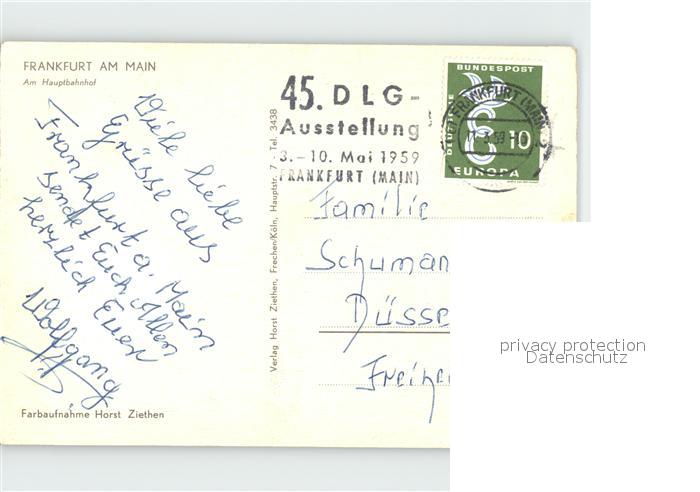 FRANKFURT AM MAIN
Am Hauptbahnhof
Viele liebe
Grüsse aus
Frankfurt a. Main
sendet Euch Allen
herzlich Euer
Wolfgang
Farbaufnahme Horst Ziethen
Verlag Horst Ziethen, Frechen/Köln, Hauptstr. 7 - Tel. 3438
45. DLG-
Ausstellung
3.-10. Mai 1959
FRANKFURT (MAIN)
DEUTSCHE
BUNDESPOST
FRANKFURT (MAIN)
10
EUROPA
Familie
Schuman
Düsse
Freihe
privacy protection
Datenschutz